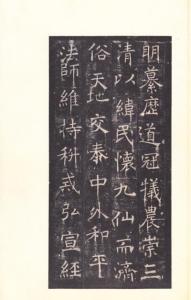 明纂歷道冠犧農崇三
清以緯民懷九仙而濟
俗天地交泰中外和平
法師維持科戒弘宣經